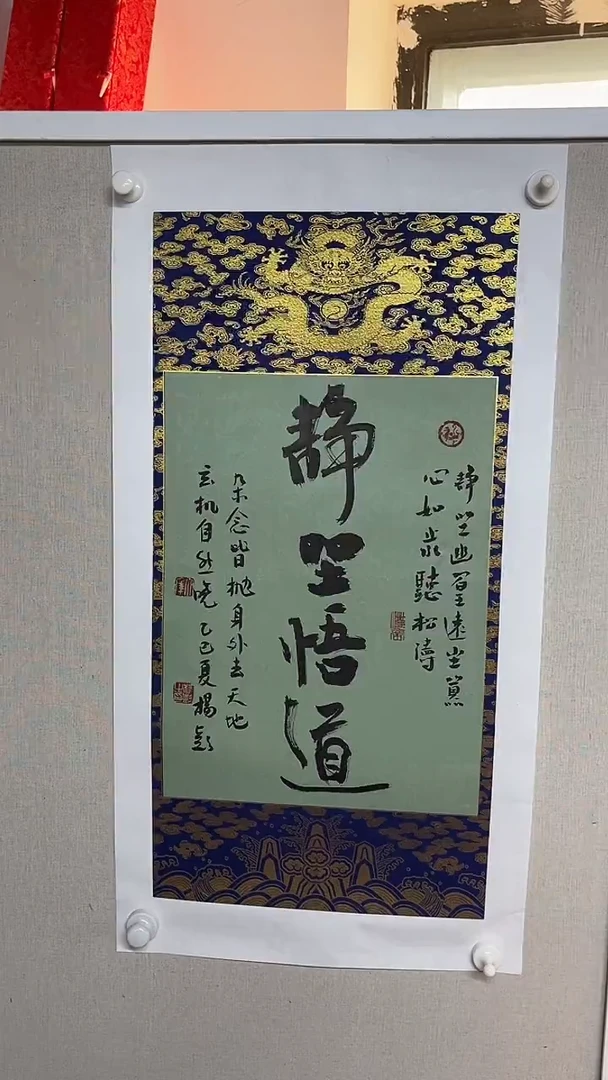 静坐幽篁遠尘嚣
心如止水聽松濤
静坐悟道
杂念皆抛身外去天地
玄机自然晓 乙巳夏楊